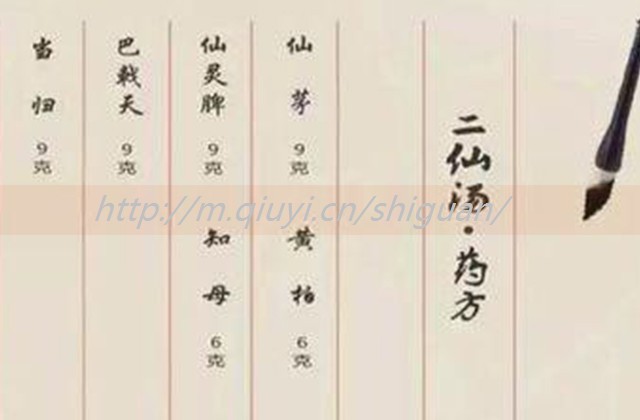 二仙汤·药方
仙茅 9克 黄柏 6克
仙灵脾 9克 知母 6克
巴戟天 9克
当归 9克
http://m.qiuyi.cn/shiguan/